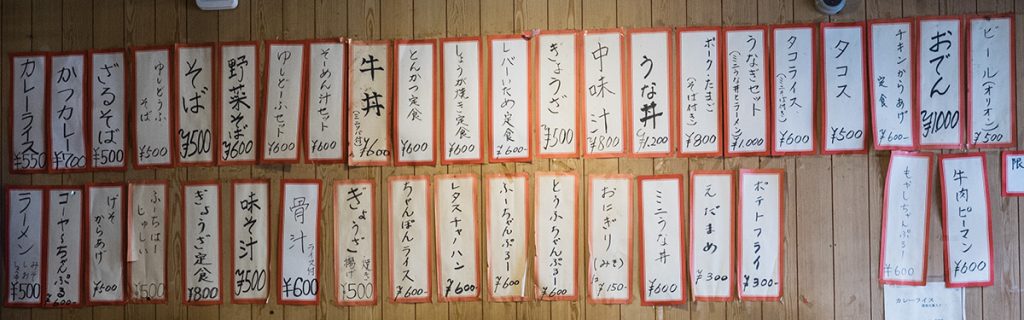 ビール(オリオン)
¥500
おでん
¥1,000
チキンからあげ
定食
¥600
タコス
¥500
タコライス
(ミニそば付き)
¥600
うなぎセット
(ミニうな丼とラーメン)
¥1,000
ポーク・たまご
(そば付き)
¥800
うな丼
¥1,200
中味汁
¥700
ぎょうざ
¥500
レバーいため定食
¥600-
しょうが焼き定食
¥600-
とんかつ定食
¥600
牛丼
¥600
そーめん汁セット
¥600
ゆしどーふセット
¥600
野菜そば
¥600
そば
¥500
ゆしどうふ
そば
¥500
ざるそば
¥500
かつカレー
¥700
カレーライス
¥550
牛肉ピーマン
¥600
もやしちゃんぷるー
¥600
ポテトフライ
¥300-
えだまめ
¥300
ミニうな丼
¥600
おにぎり
(みそ)
¥150-
とうふちゃんぷるー
¥600
ふーちゃんぷるー
¥600-
レタスチャーハン
¥600-
ちゃんぽんライス
¥600-
ぎょうざ
焼き
揚げ
¥500
骨汁
ライス付
¥600
味そ汁
¥500
ぎょうざ定食
¥800
ふーちばー
じゅしい
¥500
げそ
からあげ
¥500
ゴーヤーちゃんぷる
¥600
ラーメン
¥500
カレーライス